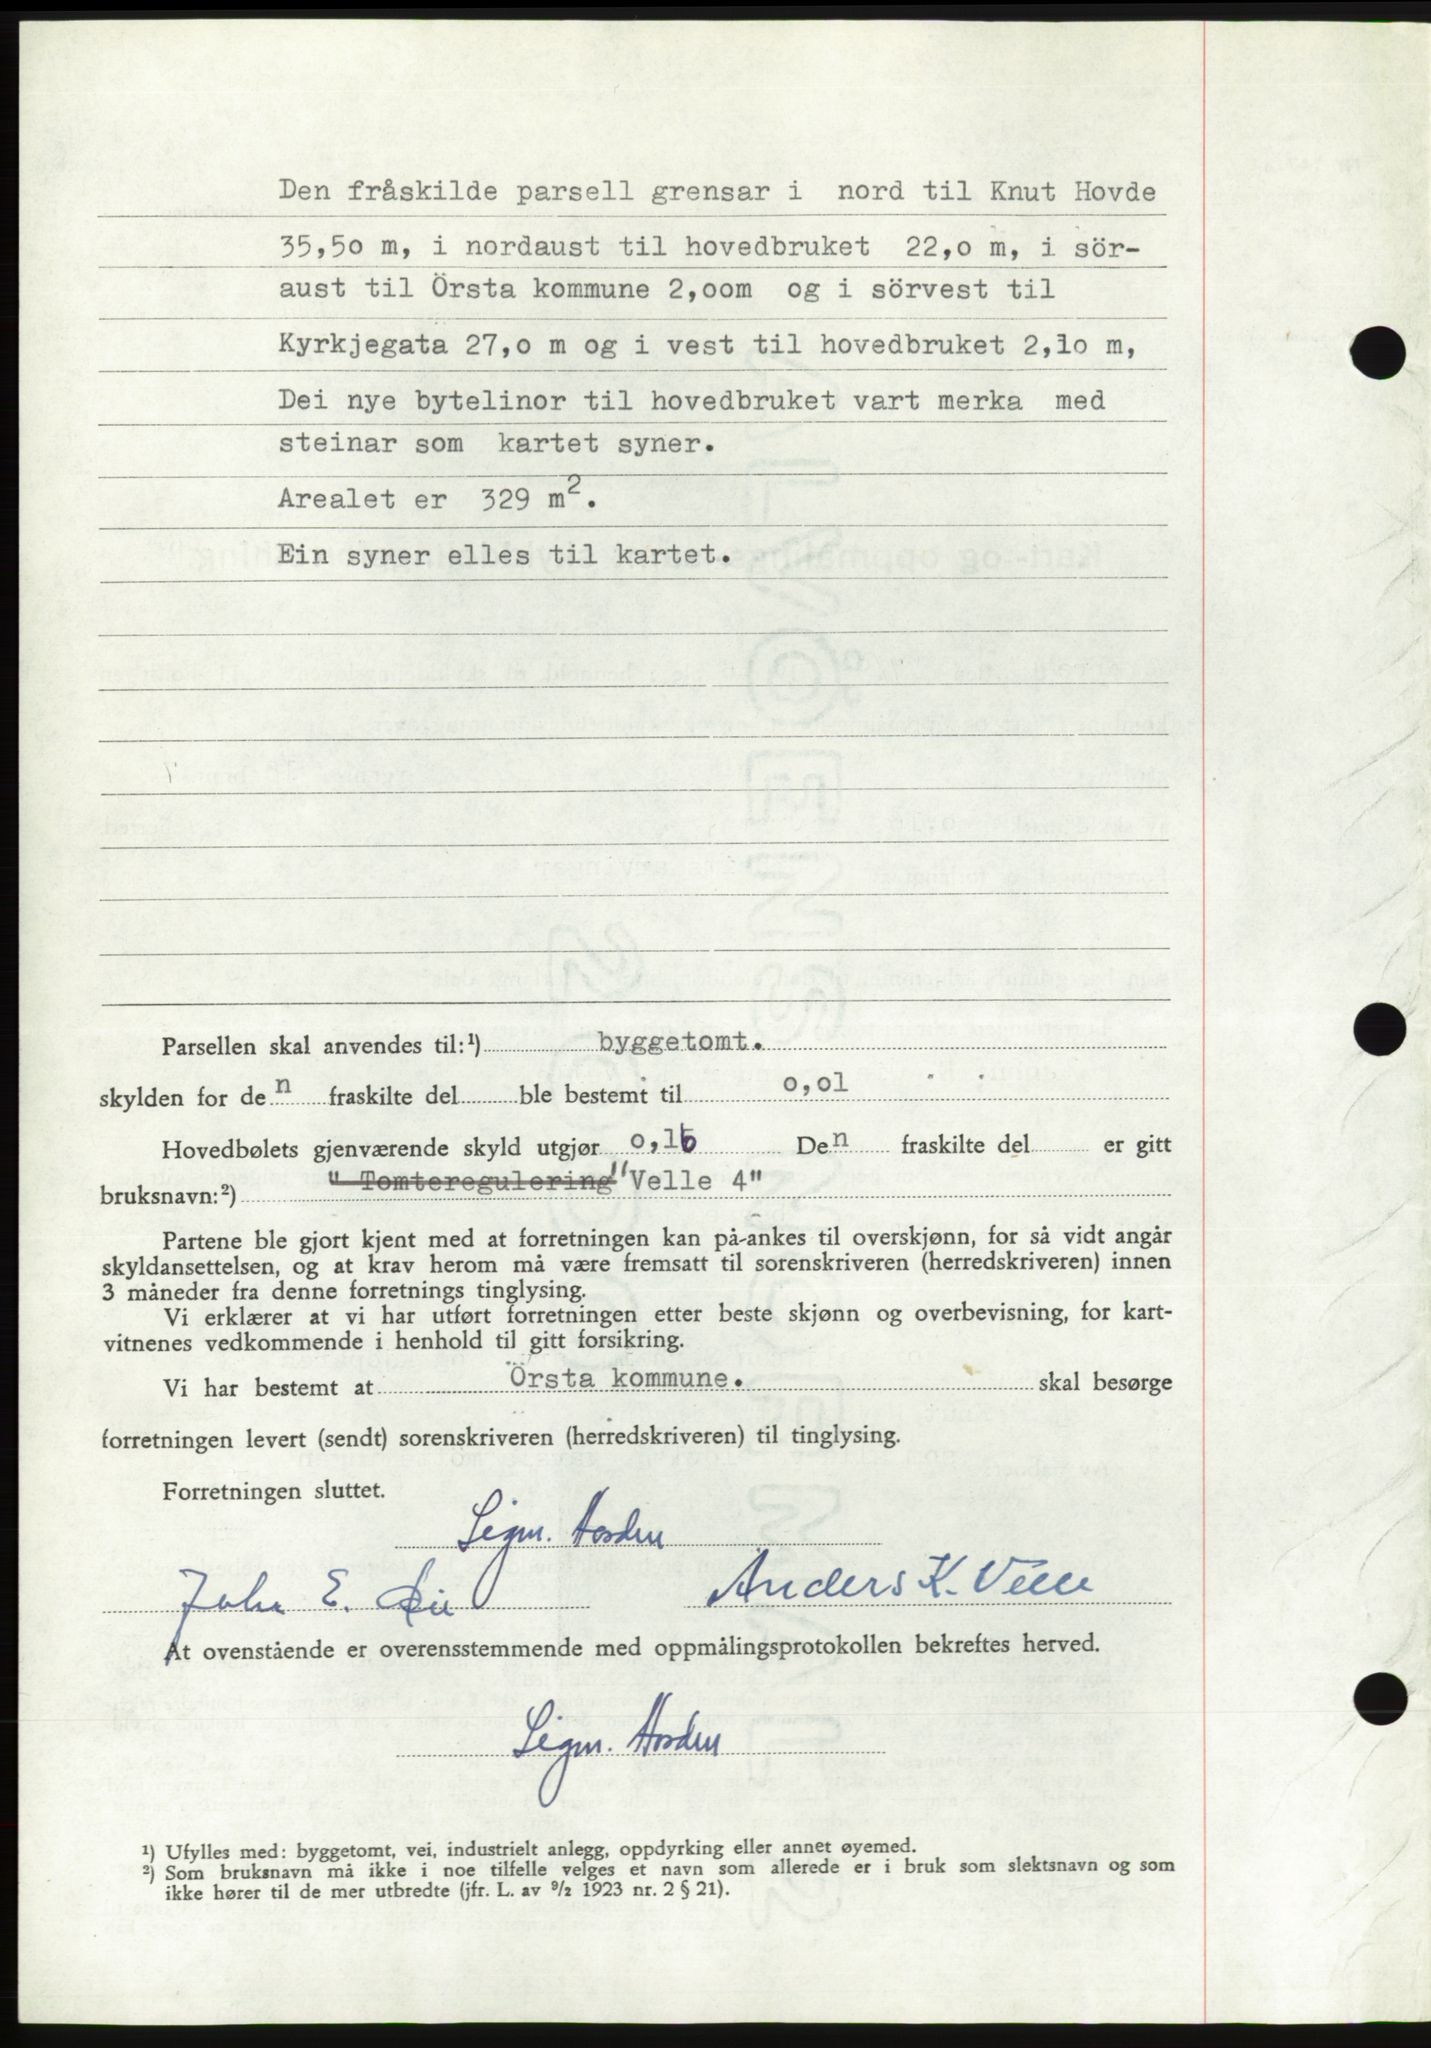 Den fråskilde parsell grensar i nord til Knut Hovde
35,50 m, i nordaust til hovedbruket 22,o m, i sör-
aust til Örsta kommune 2,oom og i sörvest til
Kyrkjegata 27,o m og i vest til hovedbruket 2,1o m,
Dei nye bytelinor til hovedbruket vart merka med
steinar som kartet syner.
Arealet er 329 m².
Ein syner elles til kartet.
Parsellen skal anvendes til:¹) byggetomt.
skylden for den fraskilte del ble bestemt til o,o1
Hovedbølets gjenværende skyld utgjør o,16 Den fraskilte del er gitt
bruksnavn:²) "Tomteregulering" "Velle 4"
Partene ble gjort kjent med at forretningen kan på-ankes til overskjønn, for så vidt angår
skyldansettelsen, og at krav herom må være fremsatt til sorenskriveren (herredskriveren) innen
3 måneder fra denne forretnings tinglysing.
Vi erklærer at vi har utført forretningen etter beste skjønn og overbevisning, for kart-
vitnenes vedkommende i henhold til gitt forsikring.
Vi har bestemt at Örsta kommune. skal besørge
forretningen levert (sendt) sorenskriveren (herredskriveren) til tinglysing.
Forretningen sluttet.
Sigm. Hovden
John E. Anders K. Velle
At ovenstående er overensstemmende med oppmålingsprotokollen bekreftes herved.
Sigm. Hovden
¹) Ufylles med: byggetomt, vei, industrielt anlegg, oppdyrking eller annet øyemed.
²) Som bruksnavn må ikke i noe tilfelle velges et navn som allerede er i bruk som slektsnavn og som
ikke hører til de mer utbredte (jfr. L. av ⁹/₂ 1923 nr. 2 § 21).